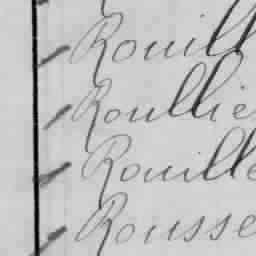 Rouill
Roullie
Rouille
Rousse